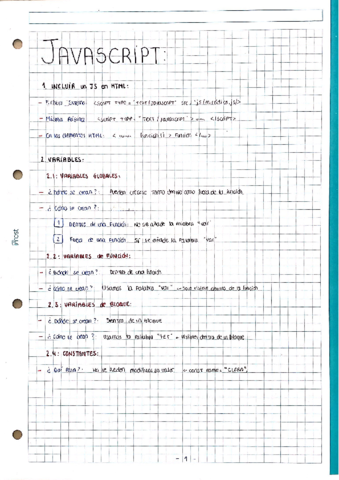 JAVASCRIPT:
1. INCLUIR un JS en HTML:
- Fichero Externo: <script type = "text/javascript" src
- Misma Página: <script type = "text/javascript"> </script>
- En los elementos HTML: <
2. VARIABLES:
2.1: VARIABLES GLOBALES:
- ¿Dónde se crean?: Pueden crearse tanto dentro como fuera de la función
- ¿Cómo se crean?
1 DENTRO de una función: no se añade la palabra "var"
2 Fuera de una función: Sí se añade la palabra "var"
2.2: VARIABLES de FUNCIÓN:
- ¿Dónde se crean?: Dentro de una función
- ¿Cómo se crean?: Usamos la palabra "var" → Solo existe dentro de la función
2.3: VARIABLES de BLOQUE:
- ¿Dónde se crean?: Dentro de un bloque
- ¿Cómo se crean?: Usamos la palabra "let" → existen dentro del bloque
2.4: CONSTANTES:
- ¿Qué son?: No se pueden modificar su valor → const name =
- 1 -
iProst